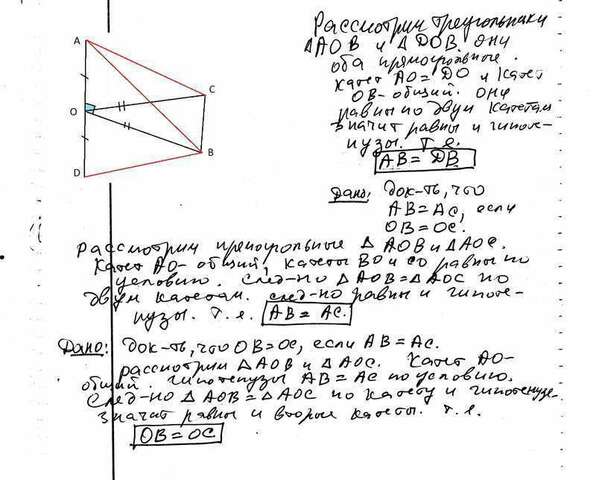 Рассмотрим треугольники
△AOB и △DOB. они
оба прямоугольные.
катет AO=DO и катет
OB-общий. они
равны по двум катетам
значит равны и гипоте-
нузы. т.е.
AB = DB
A
C
O
B
D
Дано: док-ть, что
AB = AC, если
OB = OC.
рассмотрим прямоугольные △AOB и △AOC.
Катет AO- общий, катеты BO и CO равны по
условию. след-но △AOB=△AOC по
двум катетам. след-но равны и гипоте-
нузы. т.е. AB = AC.
Дано: док-ть, что OB=OC, если AB = AC.
рассмотрим △AOB и △AOC. Катет AO-
общий. гипотенузы AB = AC по условию.
след-но △AOB=△AOC по катету и гипотенузе.
значит равны и вторые катеты. т.е.
OB = OC